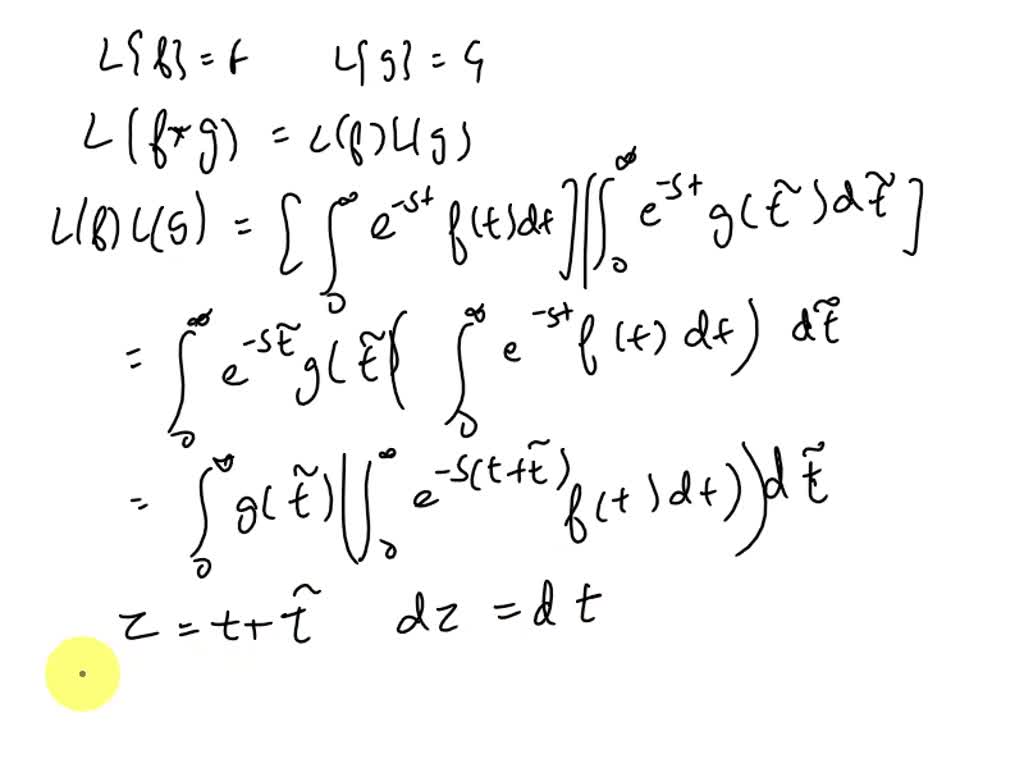 L{f} = F L{g} = G
L(f*g) = L(f)L(g)
L(f)L(g) = [∫₀^∞ e^{-st} f(t)dt][∫₀^∞ e^{-st} g(t̃)dt̃]
= ∫₀^∞ e^{-st̃} g(t̃)(∫₀^∞ e^{-st} f(t)dt) dt̃
= ∫₀^∞ g(t̃)(∫₀^∞ e^{-s(t+t̃)} f(t)dt))dt̃
z = t+t̃ dz = dt